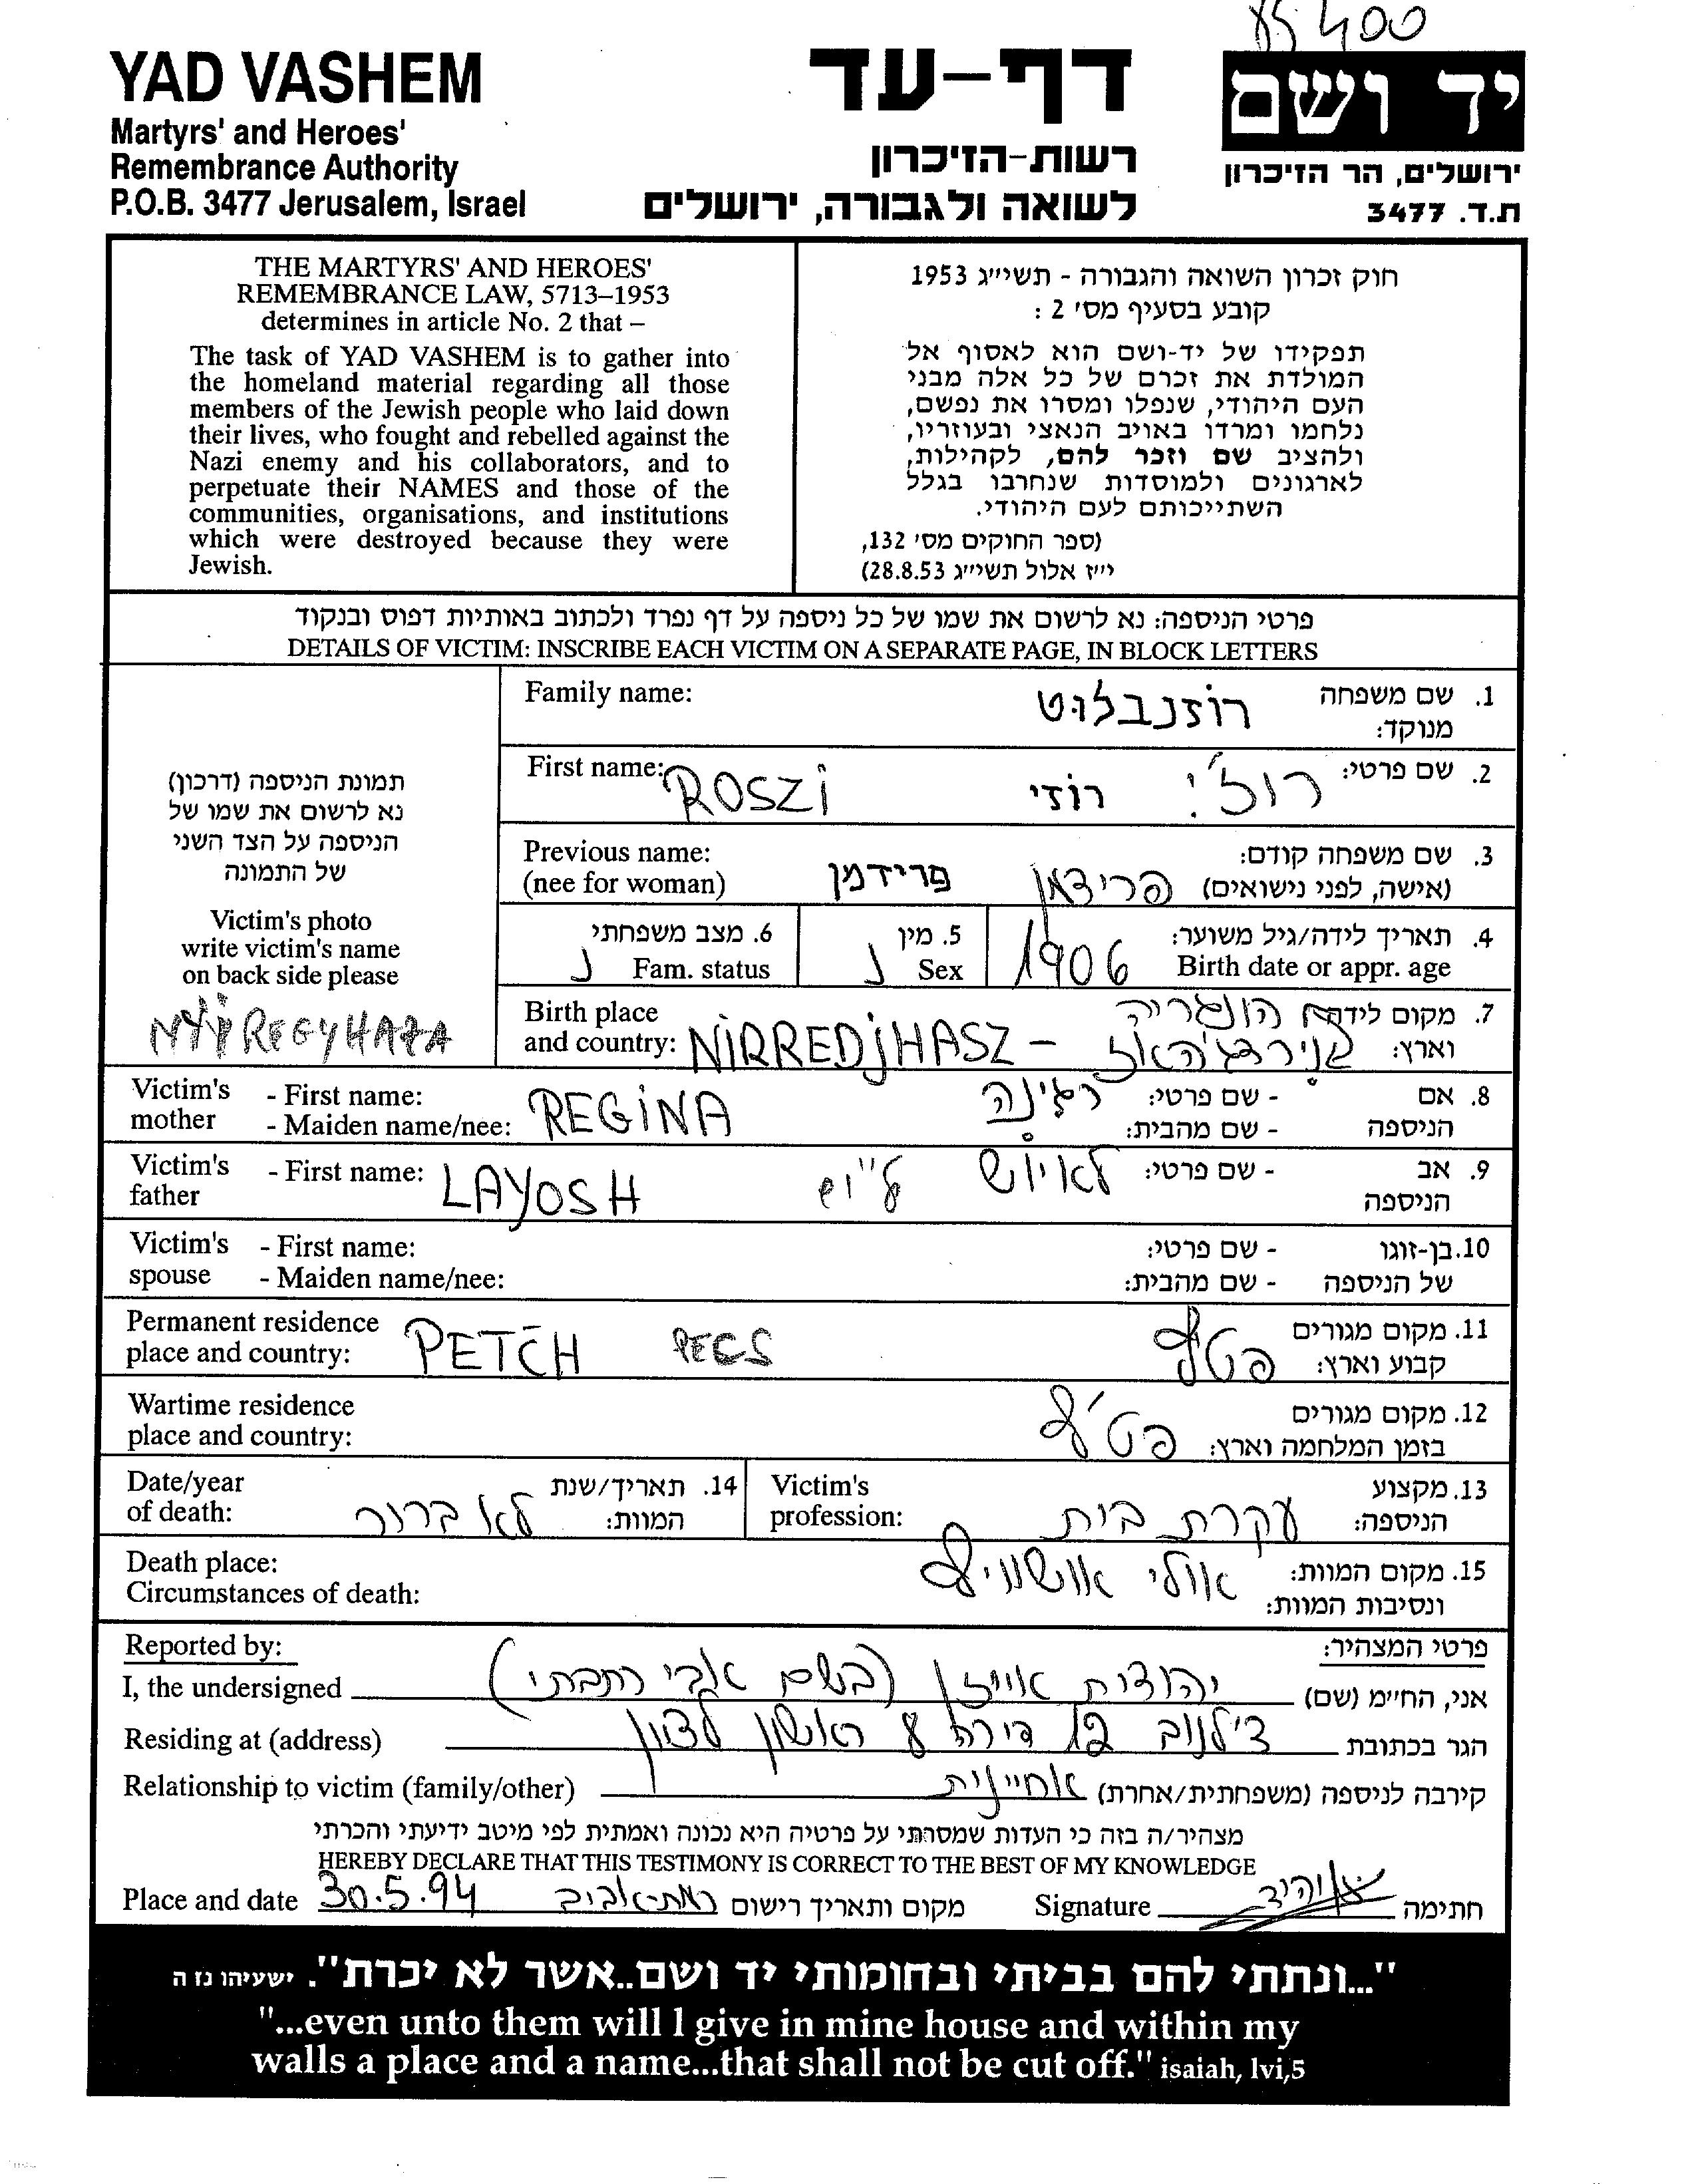 400
YAD VASHEM
Martyrs' and Heroes'
Remembrance Authority
P.O.B. 3477 Jerusalem, Israel
דף-עד
רשות-הזיכרון
לשואה ולגבורה, ירושלים
יד ושם
ירושלים, הר הזיכרון
ת.ד. 3477
THE MARTYRS' AND HEROES'
REMEMBRANCE LAW, 5713–1953
determines in article No. 2 that –
The task of YAD VASHEM is to gather into
the homeland material regarding all those
members of the Jewish people who laid down
their lives, who fought and rebelled against the
Nazi enemy and his collaborators, and to
perpetuate their NAMES and those of the
communities, organisations, and institutions
which were destroyed because they were
Jewish.
חוק זכרון השואה והגבורה - תשי״ג 1953
קובע בסעיף מס׳ 2 :
תפקידו של יד-ושם הוא לאסוף אל
המולדת את זכרם של כל אלה מבני
העם היהודי, שנפלו ומסרו את נפשם,
נלחמו ומרדו באויב הנאצי ובעוזריו,
ולהציב שם וזכר להם, לקהילות,
לארגונים ולמוסדות שנחרבו בגלל
השתייכותם לעם היהודי.
(ספר החוקים מס׳ 132,
י״ז אלול תשי״ג 28.8.53)
פרטי הניספה: נא לרשום את שמו של כל ניספה על דף נפרד ולכתוב באותיות דפוס ובנקוד
DETAILS OF VICTIM: INSCRIBE EACH VICTIM ON A SEPARATE PAGE, IN BLOCK LETTERS
תמונת הניספה (דרכון)
נא לרשום את שמו של
הניספה על הצד השני
של התמונה
Victim's photo
write victim's name
on back side please
NYIREGYHAZA
Family name: רוזנבלוט 1. שם משפחה
מנוקד:
First name: ROSZI רוזי רוז'י 2. שם פרטי:
Previous name: 3. שם משפחה קודם:
(nee for woman) פרידמן פרידמן (אישה, לפני נישואים)
6. מצב משפחתי 5. מין 4. תאריך לידה/גיל משוער:
נ Fam. status נ Sex 1906 Birth date or appr. age
Birth place הונגריה 7. מקום לידה
and country: NIRREDJHASZ - וארץ:
Victim's - First name: REGINA רגינה - שם פרטי: 8. אם
mother - Maiden name/nee: - שם מהבית: הניספה
Victim's - First name: LAYOSH לאיוש - שם פרטי: 9. אב
father הניספה
Victim's - First name: - שם פרטי: 10. בן-זוגו
spouse - Maiden name/nee: - שם מהבית: של הניספה
Permanent residence 11. מקום מגורים
place and country: PETCH PECS פטץ קבוע וארץ:
Wartime residence 12. מקום מגורים
place and country: פטץ' בזמן המלחמה וארץ:
Date/year 14. תאריך/שנת Victim's 13. מקצוע
of death: לא ברור המוות: profession: עקרת בית הניספה:
Death place: אולי אושוויץ 15. מקום המוות:
Circumstances of death: ונסיבות המוות:
Reported by: פרטי המצהיר:
I, the undersigned יהודית אייזן (בשם אבי רחבתי) אני, החי״מ (שם)
Residing at (address) צ'לנוב 19 דירה 8 ראשון לציון הגר בכתובת
Relationship to victim (family/other) אחיינית קירבה לניספה (משפחתית/אחרת)
מצהיר/ה בזה כי העדות שמסרתי על פרטיה היא נכונה ואמתית לפי מיטב ידיעתי והכרתי
HEREBY DECLARE THAT THIS TESTIMONY IS CORRECT TO THE BEST OF MY KNOWLEDGE
Place and date 30.5.94 רמת-אביב מקום ותאריך רישום Signature חתימה
"...ונתתי להם בביתי ובחומותי יד ושם..אשר לא יכרת". ישעיהו נז ה
"...even unto them will I give in mine house and within my
walls a place and a name...that shall not be cut off." isaiah, lvi,5